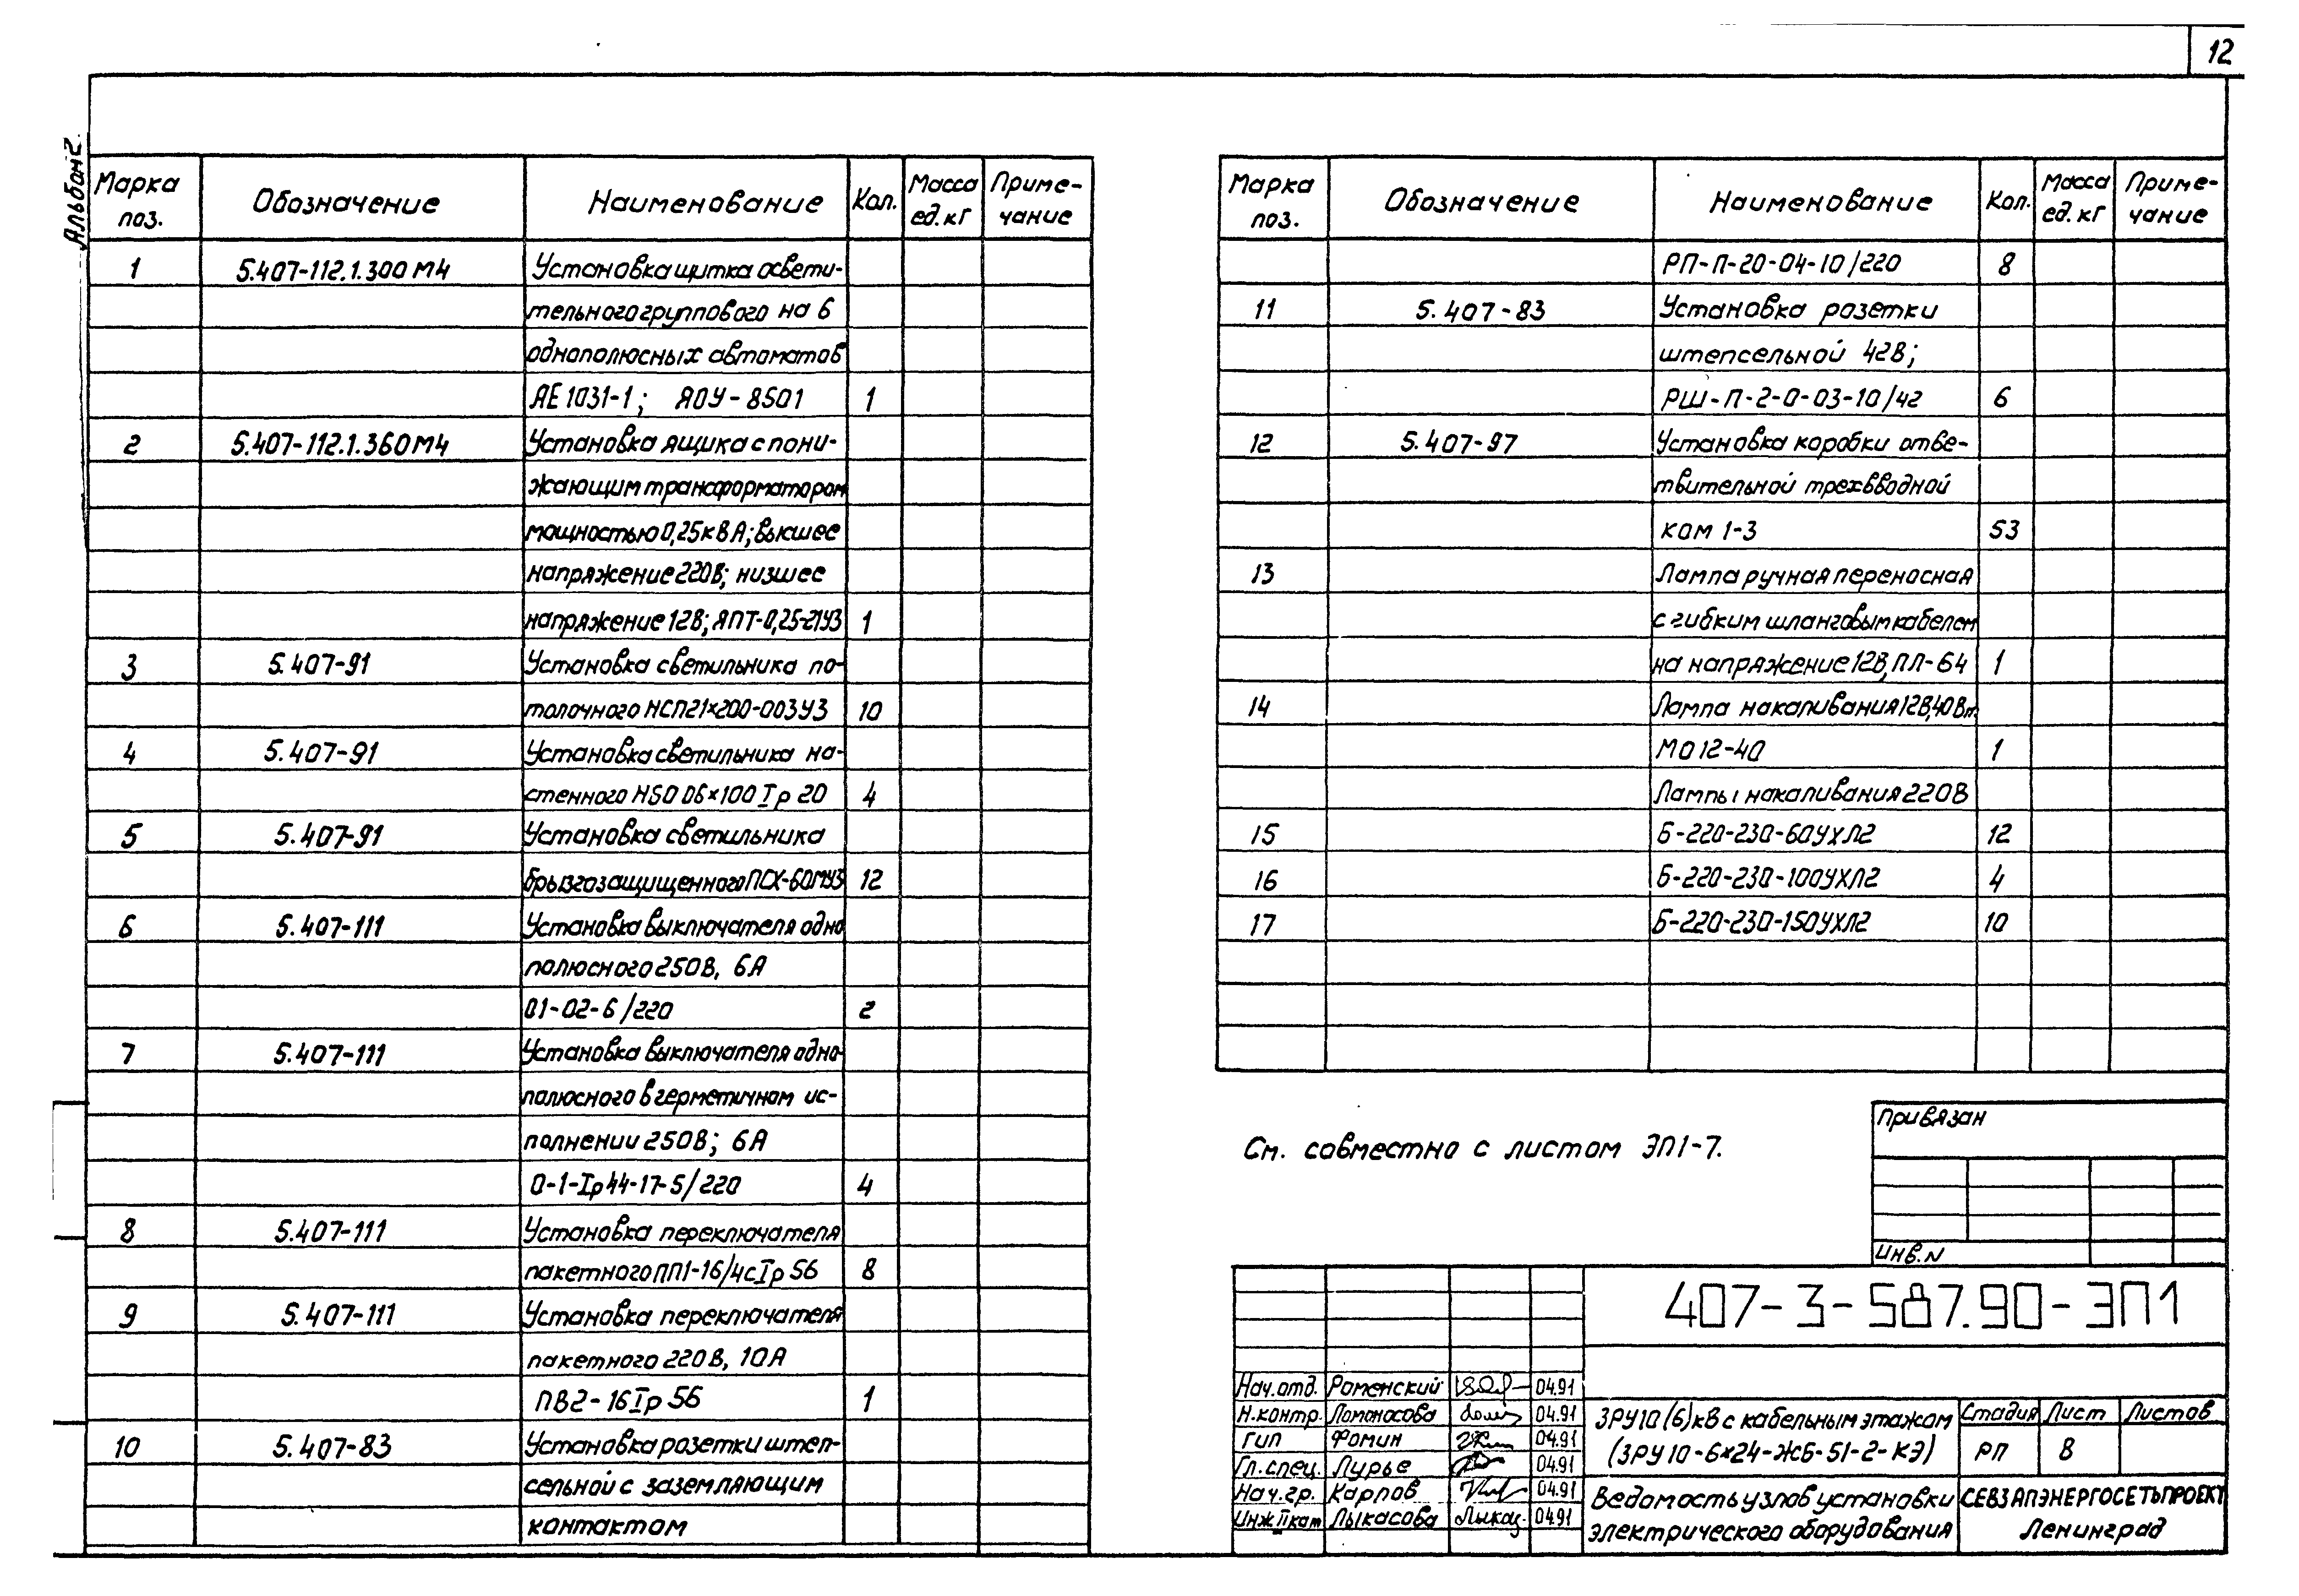 12
Альбом 2.
Марка поз. Обозначение Наименование Кол. Масса ед. кг Приме-чание
1 5.407-112.1.300 М4 Установка щитка освети-
тельного группового на 6
однополюсных автоматов
АЕ 1031-1; ЯОУ-8501 1
2 5.407-112.1.360 М4 Установка ящика с пони-
жающим трансформатором
мощностью 0,25 кВА; высшее
напряжение 220В; низшее
напряжение 12В; ЯПТ-0,25-21У3 1
3 5.407-91 Установка светильника по-
толочного НСП21×200-003У3 10
4 5.407-91 Установка светильника на-
стенного НSО 06×100 Iр 20 4
5 5.407-91 Установка светильника
брызгозащищенного ПСХ-60МУ3 12
6 5.407-111 Установка выключателя одно
полюсного 250В, 6А
01-02-6/220 2
7 5.407-111 Установка выключателя одно-
полюсного в герметичном ис-
полнении 250В; 6А
0-1-Iр44-17-5/220 4
8 5.407-111 Установка переключателя
пакетного ПП1-16/4с Iр 56 8
9 5.407-111 Установка переключателя
пакетного 220В, 10А
ПВ2-16 Iр 56 1
10 5.407-83 Установка розетки штеп-
сельной с заземляющим
контактом
Марка поз. Обозначение Наименование Кол. Масса ед. кг Приме-чание
РП-П-20-04-10/220 8
11 5.407-83 Установка розетки
штепсельной 42В;
РШ-П-2-0-03-10/42 6
12 5.407-97 Установка коробки отве-
твительной трехвводной
КОМ 1-3 53
13 Лампа ручная переносная
с гибким шланговым кабелем
на напряжение 12В, ПЛ-64 1
14 Лампа накаливания 12В, 40Вт
МО 12-40 1
Лампы накаливания 220В
15 Б-220-230-60УХЛ2 12
16 Б-220-230-100УХЛ2 4
17 Б-220-230-150УХЛ2 10
См. совместно с листом ЭП1-7.
Привязан
Инв. N
407-3-587.90-ЭП1
Нач. отд. Роменский 04.91
Н. контр. Ломоносова 04.91
ГИП Фомин 04.91
Гл. спец. Лурье 04.91
Нач. гр. Карпов 04.91
Инж. II кат Лыкасова 04.91
ЗРУ 10 (6) кВ с кабельным этажом
(ЗРУ 10-6×24-ЖБ-51-2-КЭ)
Стадия Лист Листов
РП 8
Ведомость узлов установки
электрического оборудования
СЕВЗАПЭНЕРГОСЕТЬПРОЕКТ
Ленинград